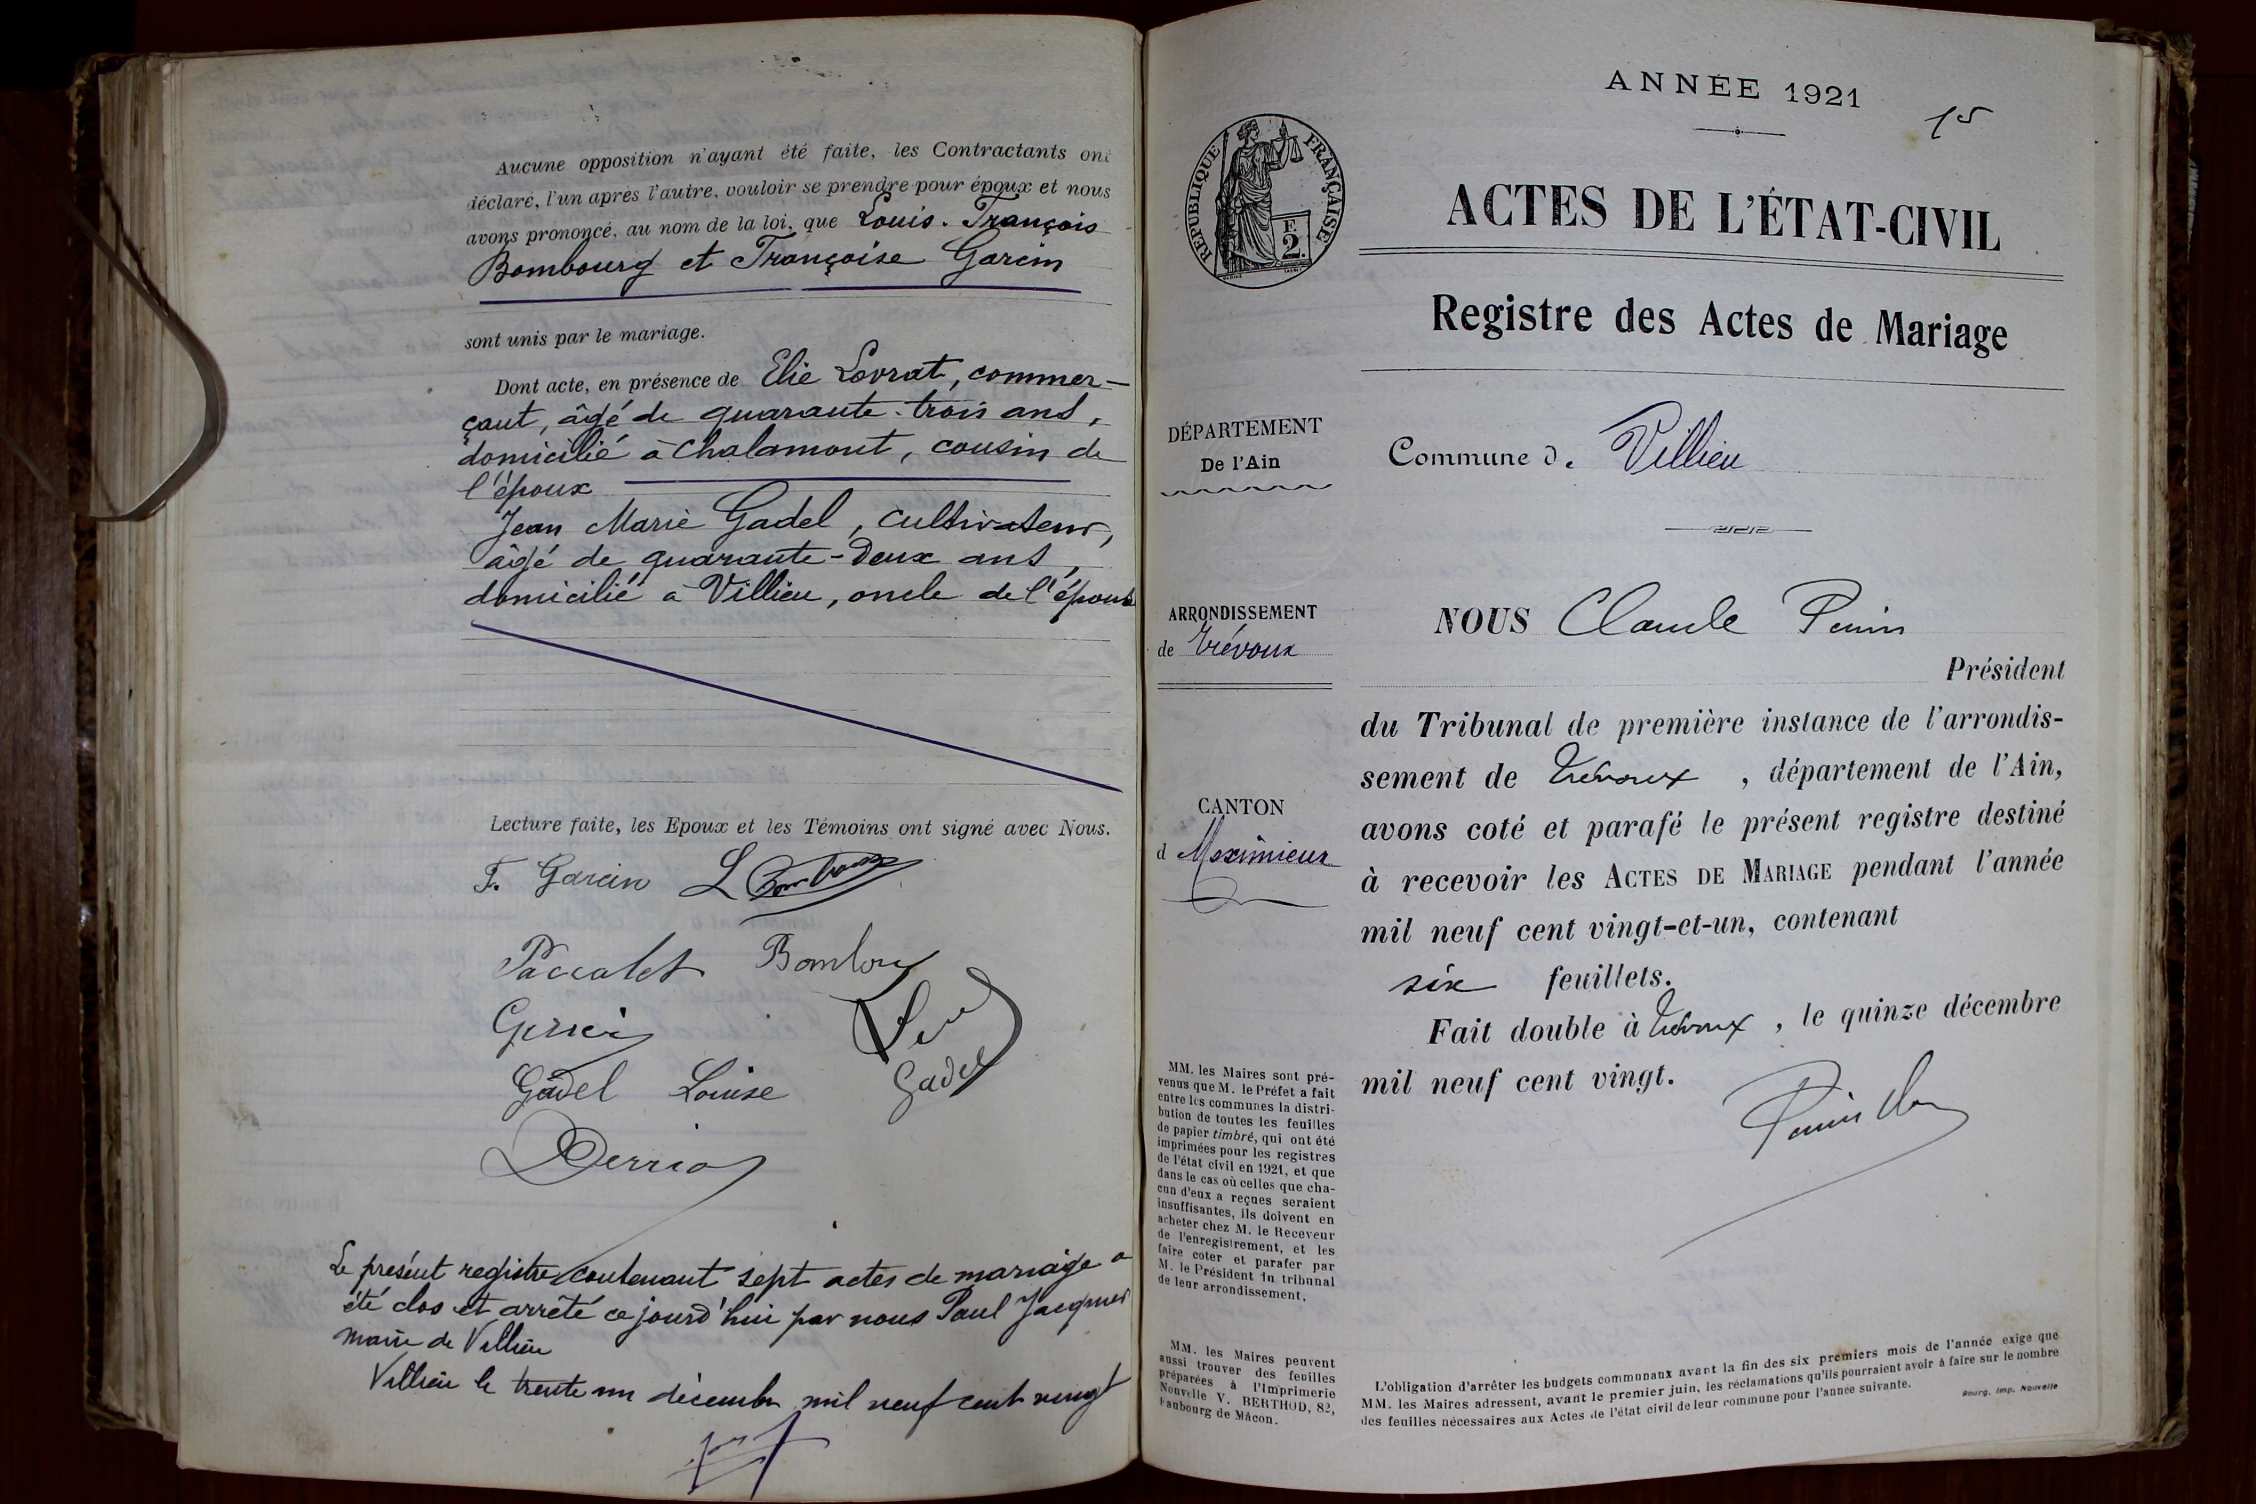 Aucune opposition n'ayant été faite, les Contractants ont
déclaré, l'un après l'autre, vouloir se prendre pour époux et nous
avons prononcé, au nom de la loi, que Louis. François
Bombourg et Françoise Garcin
sont unis par le mariage.
Dont acte, en présence de Elie Lovrat, commer-
çant, âgé de quarante-trois ans,
domicilié à Chalamont, cousin de
l'époux
Jean Marie Gadel, cultivateur,
âgé de quarante-deux ans,
domicilié à Villieu, oncle de l'épouse
Lecture faite, les Epoux et les Témoins ont signé avec Nous.
F. Garcin L
Paccalet
Gadel Louise Gadel
Le présent registre contenant sept actes de mariage a
été clos et arrêté ce jourd'hui par nous Paul Jacquier
maire de Villieu
Villieu le trente un décembre mil neuf cent vingt
ANNÉE 1921
15
RÉPUBLIQUE FRANÇAISE
F.
2.
ACTES DE L'ÉTAT-CIVIL
Registre des Actes de Mariage
DÉPARTEMENT
De l'Ain
ARRONDISSEMENT
de Trévoux
CANTON
d Meximieux
MM. les Maires sont pré-
venus que M. le Préfet a fait
entre les communes la distri-
bution de toutes les feuilles
de papier timbré, qui ont été
imprimées pour les registres
de l'état civil en 1921, et que
dans le cas où celles que cha-
cun d'eux a reçues seraient
insuffisantes, ils doivent en
acheter chez M. le Receveur
de l'enregistrement, et les
faire coter et parafer par
M. le Président du tribunal
de leur arrondissement.
MM. les Maires peuvent
aussi trouver des feuilles
préparées à l'Imprimerie
Nouvelle V. BERTHOD, 82,
Faubourg de Mâcon.
Commune de Villieu
NOUS Claude
Président
du Tribunal de première instance de l'arrondis-
sement de Trévoux, département de l'Ain,
avons coté et parafé le présent registre destiné
à recevoir les ACTES DE MARIAGE pendant l'année
mil neuf cent vingt-et-un, contenant
six feuillets.
Fait double à Trévoux, le quinze décembre
mil neuf cent vingt.
L'obligation d'arrêter les budgets communaux avant la fin des six premiers mois de l'année exige que
MM. les Maires adressent, avant le premier juin, les réclamations qu'ils pourraient avoir à faire sur le nombre
des feuilles nécessaires aux Actes de l'état civil de leur commune pour l'année suivante.
Bourg, Imp. Nouvelle